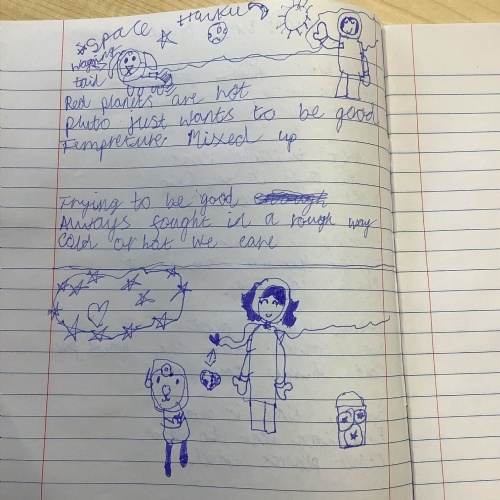 Space Haiku
wagging
tail
Red planets are hot
pluto just wants to be good
Tempreture Mixed up
Trying to be good
Always fought in a rough way
Cold or hot we care